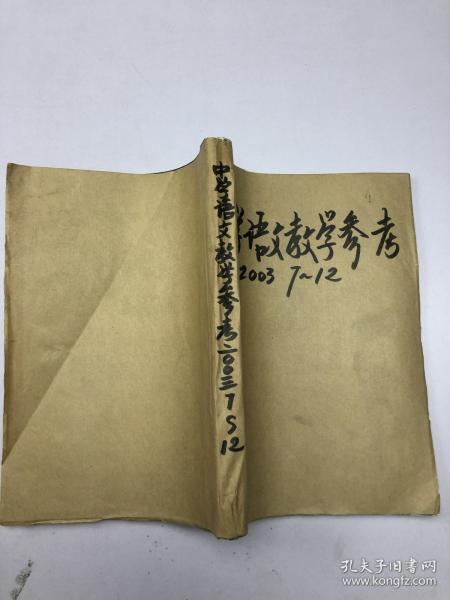 中学语文教学参考二〇〇三 7~12
学语文教学参考
2003 7~12
孔夫子旧书网
www.kongfz.com